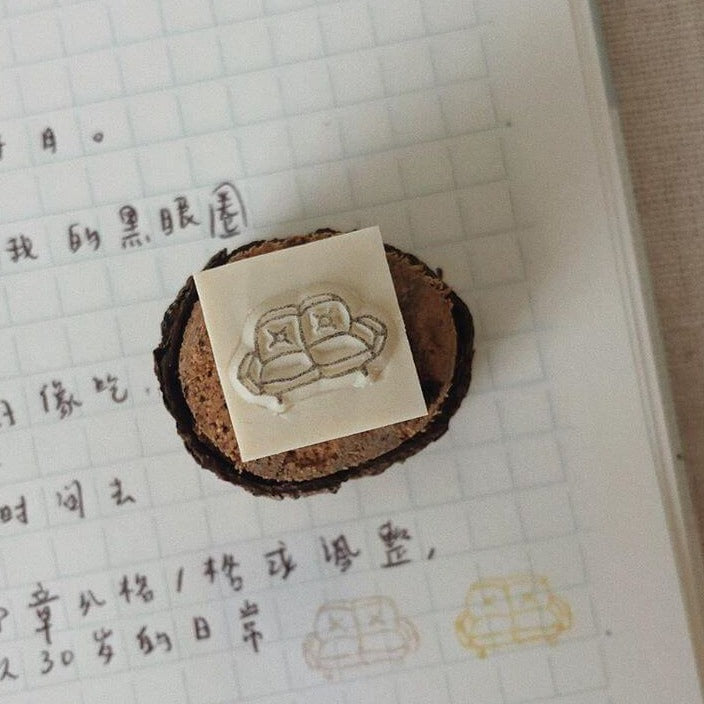 月。
我的黑眼圈
像吃
时间去
章几格/格或调整，
30岁的日常